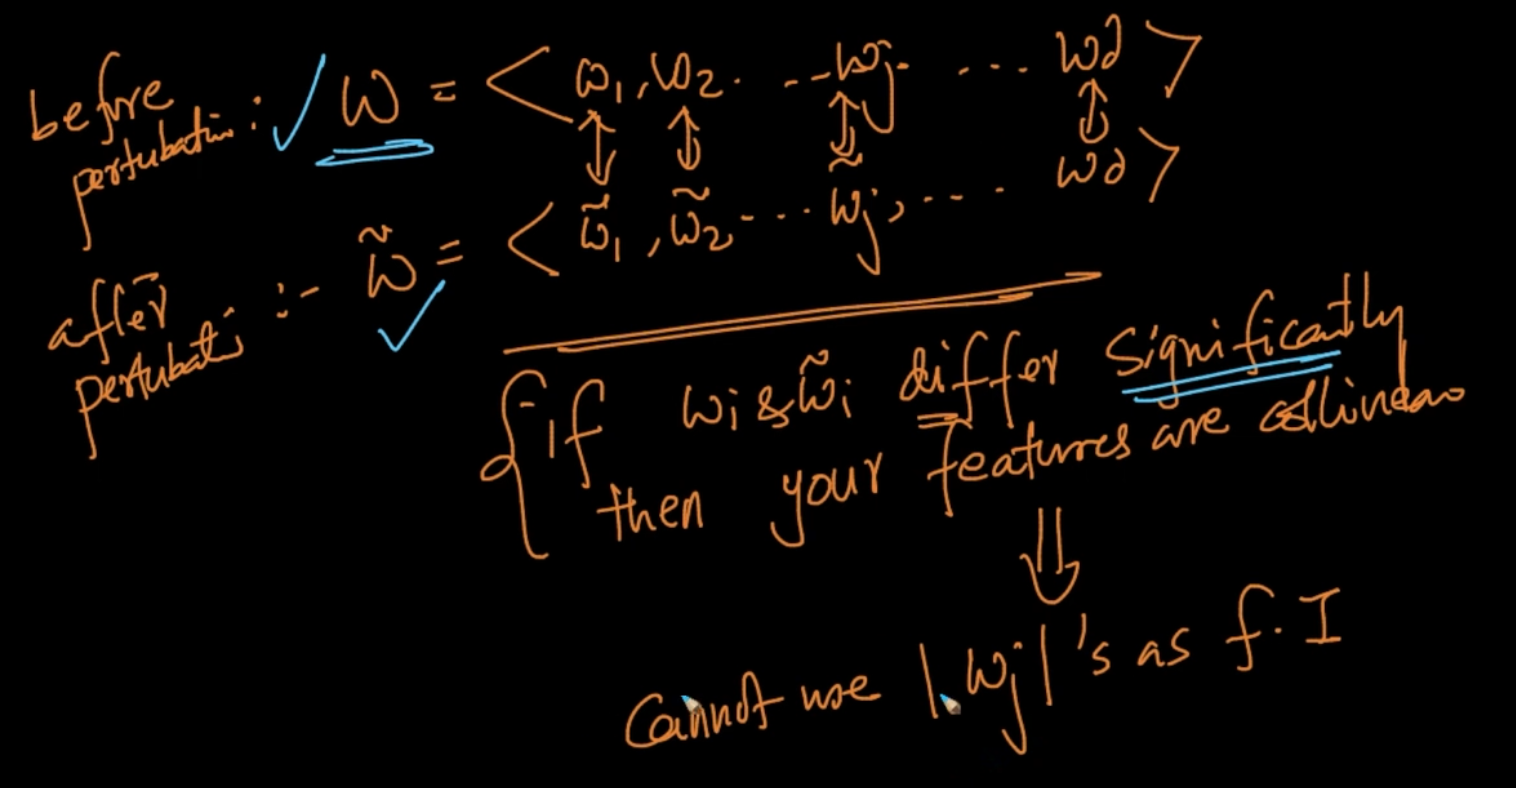 before
pertubation : ✓ W = < ω₁, ω₂. . . ωj . . . . ωd >
after
pertubatⁿ :- ω̃ = < ω̃₁, ω̃₂ . . . ω̃j, . . . . ωd >
if ωi & ω̃i differ significantly
then your features are collinear
Cannot use |wj|'s as f.I